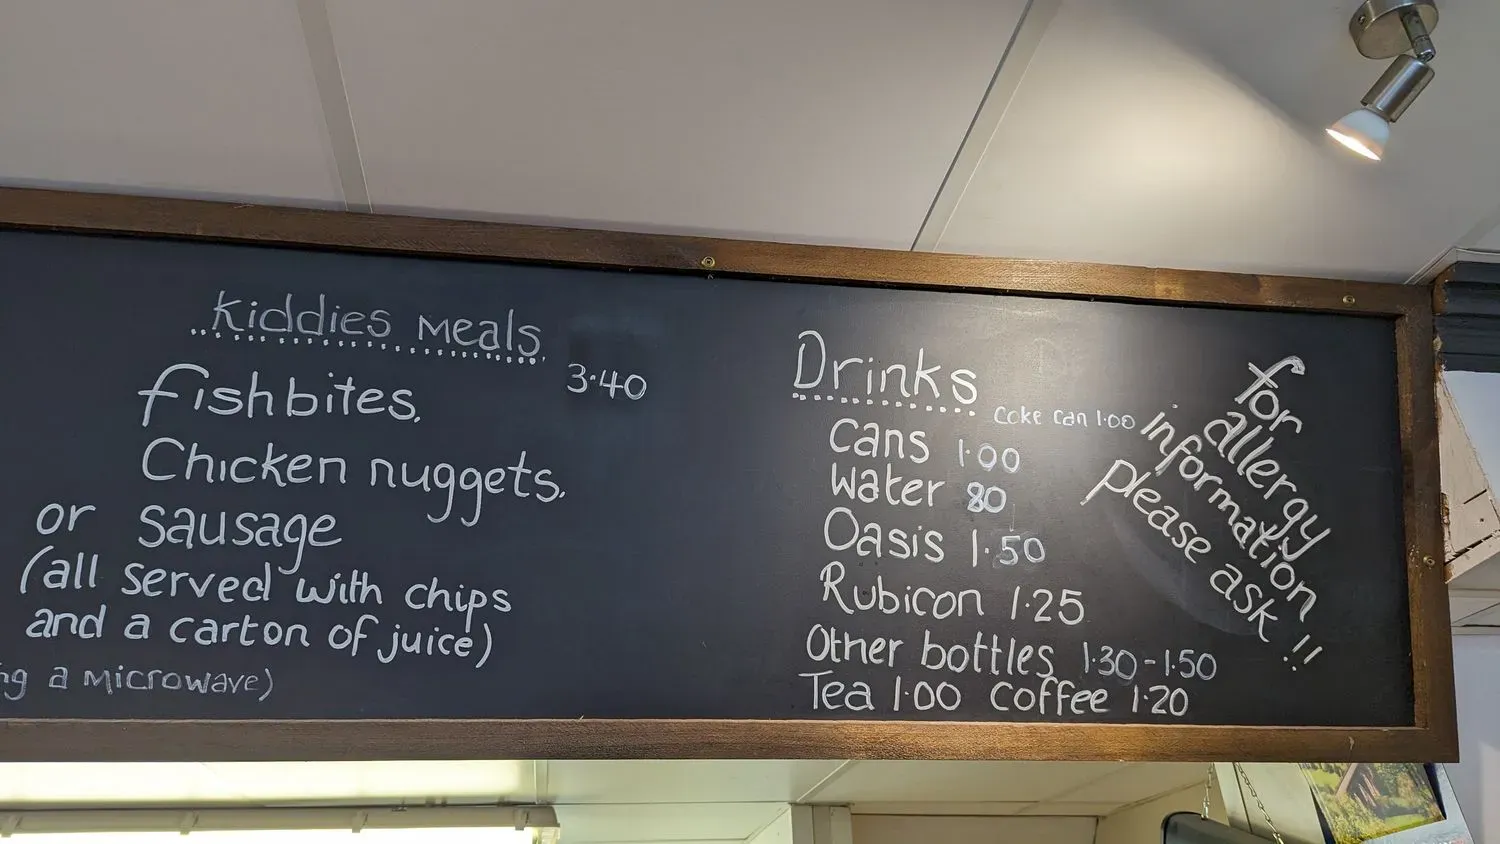 ..Kiddies Meals
3.40
fishbites.
Chicken nuggets.
or sausage
(all served with chips
and a carton of juice)
a microwave)
Drinks
Coke can 1.00
Cans 1.00
Water 80
Oasis 1.50
Rubicon 1.25
Other bottles 1.30-1.50
Tea 1.00 Coffee 1.20
for
allergy
information
please ask !!